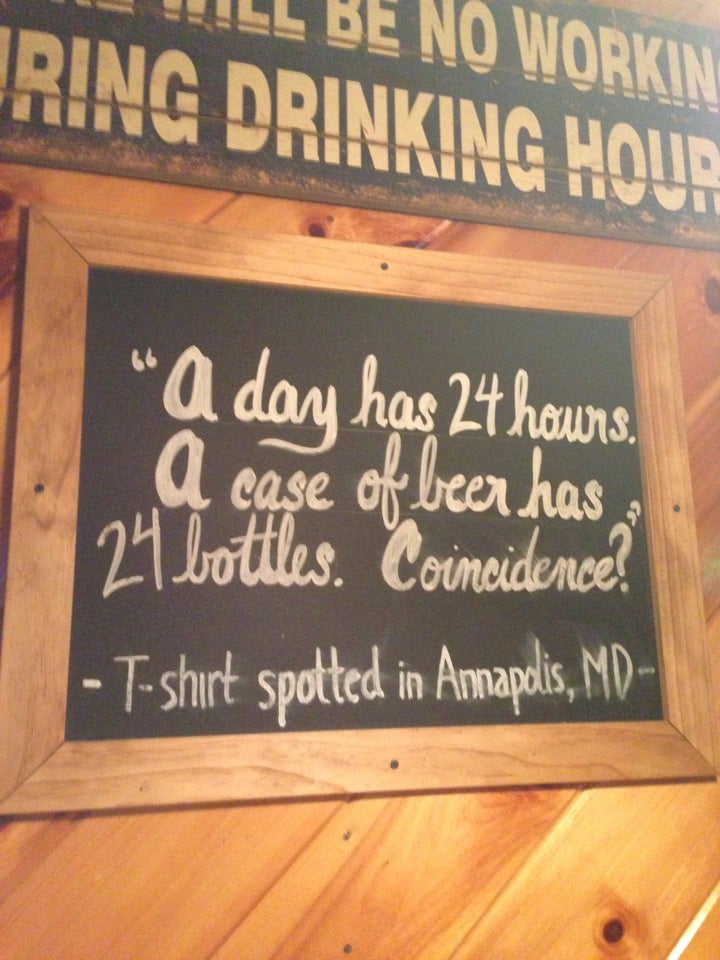 WILL BE NO WORKING
DRINKING HOUR
“A day has 24 hours.
A case of beer has
24 bottles. Coincidence?”
- T-shirt spotted in Annapolis, MD -